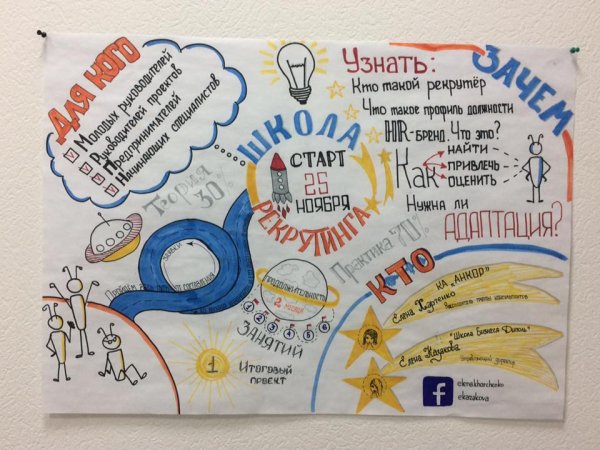 ДЛЯ КОГО
Молодых руководителей
Руководителей проектов
Предпринимателей
Начинающих специалистов
ШКОЛА
СТАРТ
25
НОЯБРЯ
РЕКРУТИНГА
ЗАЧЕМ
Узнать:
Кто такой рекрутёр
Что такое профиль должности
HR-БРЕНД. Что это?
Как
НАЙТИ
ПРИВЛЕЧЬ
ОЦЕНИТЬ
Нужна ли
АДАПТАЦИЯ?
Теория
30%
Практика 70%
ПРОДОЛЖИТЕЛЬНОСТЬ
2 месяца
1 2 3 4 5 6
ЗАНЯТИЙ
1
Итоговый
проект
КТО
НА "АНКОР"
Елена Харченко
"Школа Бизнеса Диполь"
Елена Казакова
Управляющий директор
f
elena.kharchenko
ekazakova